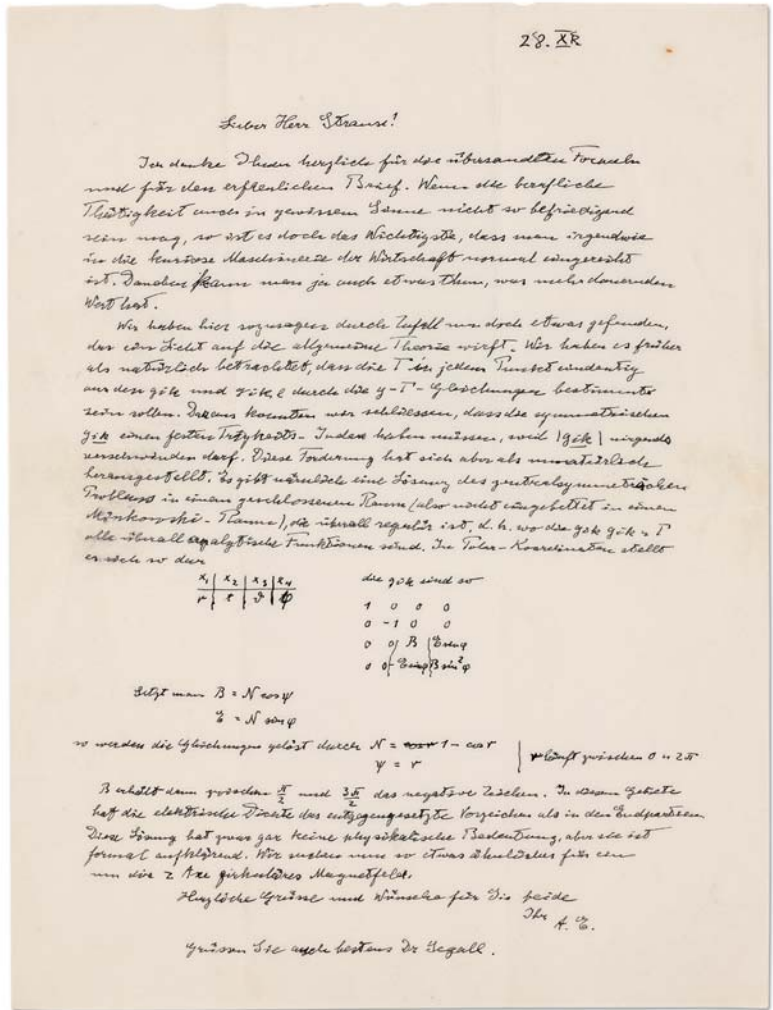 28. XII
Lieber Herr Strauss!
Ich danke Ihnen herzlich für die übersandten Formeln
und für den erfreulichen Brief. Wenn die berufliche
Thätigkeit auch in gewissem Sinne nicht so befriedigend
sein mag, so ist es doch das Wichtigste, dass man irgendwie
in die kuriose Maschinerie der Wirtschaft normal eingereiht
ist. Daneben kann man ja auch etwas thun, was mehr dauernden
Wert hat.
Wir haben hier sozusagen durch Zufall nun doch etwas gefunden,
das ein Licht auf die allgemeine Theorie wirft. Wir haben es früher
als natürlich betrachtet, dass die Γ in jedem Punkt eindeutig
aus den gik und gik,l durch die g-Γ-Gleichungen bestimmt
sein sollen. Daraus konnten wir schliessen, dass die symmetrischen
gik einen festen Trägheits-Index haben müssen, weil |gik| nirgends
verschwinden darf. Diese Forderung hat sich aber als unnatürlich
herausgestellt. Es gibt nämlich eine Lösung des zentralsymmetrischen
Problems in einem geschlossenen Raum (also nicht eingebettet in einen
Minkowski-Raum), die überall regulär ist, d. h. wo die gik gik u Γ
alle überall analytische Funktionen sind. In Polar-Koordinaten stellt
er sich so dar
x1 | x2 | x3 | x4 die gik sind so
r | t | ϑ | φ
1 0 0 0
0 -1 0 0
0 0 B E sin φ
0 0 -E sin φ B sin² φ
Setzt man B = N cos ψ
E = N sin ψ
so werden die Gleichungen gelöst durch N = 1 - cos r
ψ = r | r läuft zwischen 0 u 2π
B erhält dann zwischen π/2 und 3π/2 das negative Zeichen. In diesem Gebiete
hat die elektrische Dichte das entgegengesetzte Vorzeichen als in den Endpartieen.
Diese Lösung hat zwar gar keine physikalische Bedeutung, aber sie ist
formal aufklärend. Wir suchen nun so etwas ähnliches für ein
um die z Axe zirkuläres Magnetfeld.
Herzliche Grüsse und Wünsche für Sie beide
Ihr
A. E.
Grüssen Sie auch bestens Dr Segall.